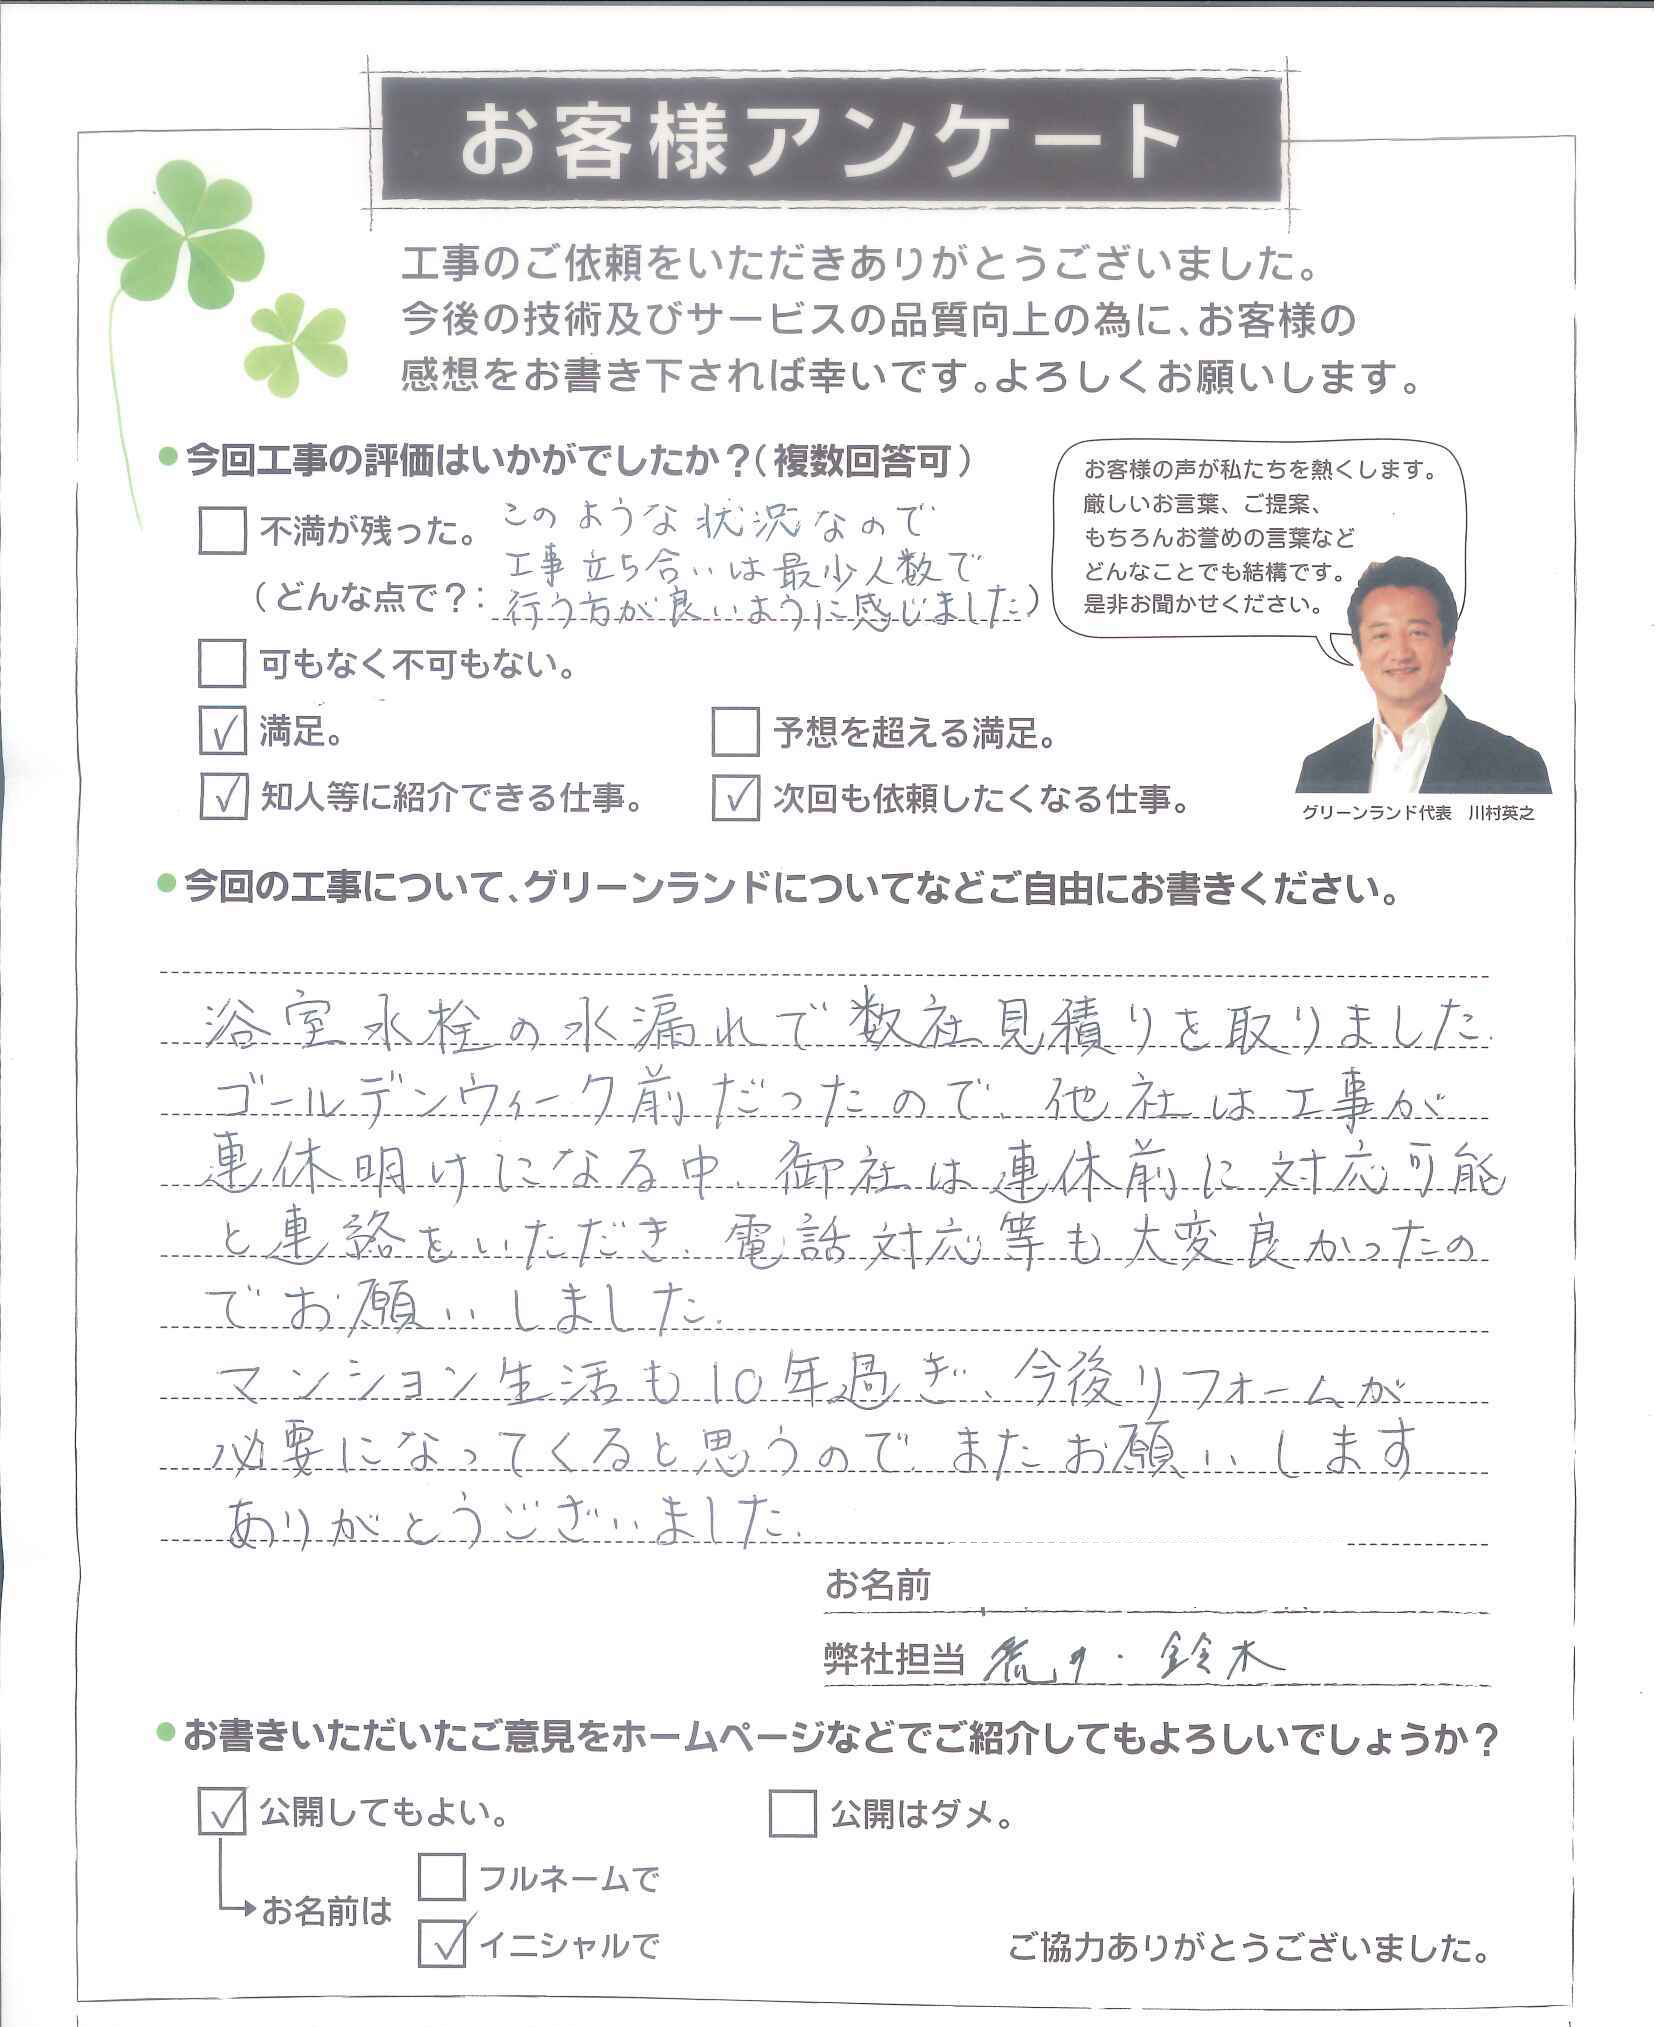 お客様アンケート
工事のご依頼をいただきありがとうございました。
今後の技術及びサービスの品質向上の為に、お客様の
感想をお書き下されば幸いです。よろしくお願いします。
●今回工事の評価はいかがでしたか？（複数回答可）
お客様の声が私たちを熱くします。
厳しいお言葉、ご提案、
もちろんお誉めの言葉など
どんなことでも結構です。
是非お聞かせください。
不満が残った。
このような状況なので
工事立ち合いは最少人数で
（どんな点で？：行う方が良いように感じました）
可もなく不可もない。
✓ 満足。
予想を超える満足。
✓ 知人等に紹介できる仕事。
✓ 次回も依頼したくなる仕事。
グリーンランド代表　川村英之
●今回の工事について、グリーンランドについてなどご自由にお書きください。
浴室水栓の水漏れで数社見積りを取りました.
ゴールデンウィーク前だったので、他社は工事が
連休明けになる中、御社は連休前に対応可能
と連絡をいただき、電話対応等も大変良かったの
でお願いしました.
マンション生活も10年過ぎ、今後リフォームが
必要になってくると思うので、またお願いします
ありがとうございました.
お名前
弊社担当 ・鈴木
●お書きいただいたご意見をホームページなどでご紹介してもよろしいでしょうか？
✓ 公開してもよい。
公開はダメ。
お名前は
フルネームで
✓ イニシャルで
ご協力ありがとうございました。